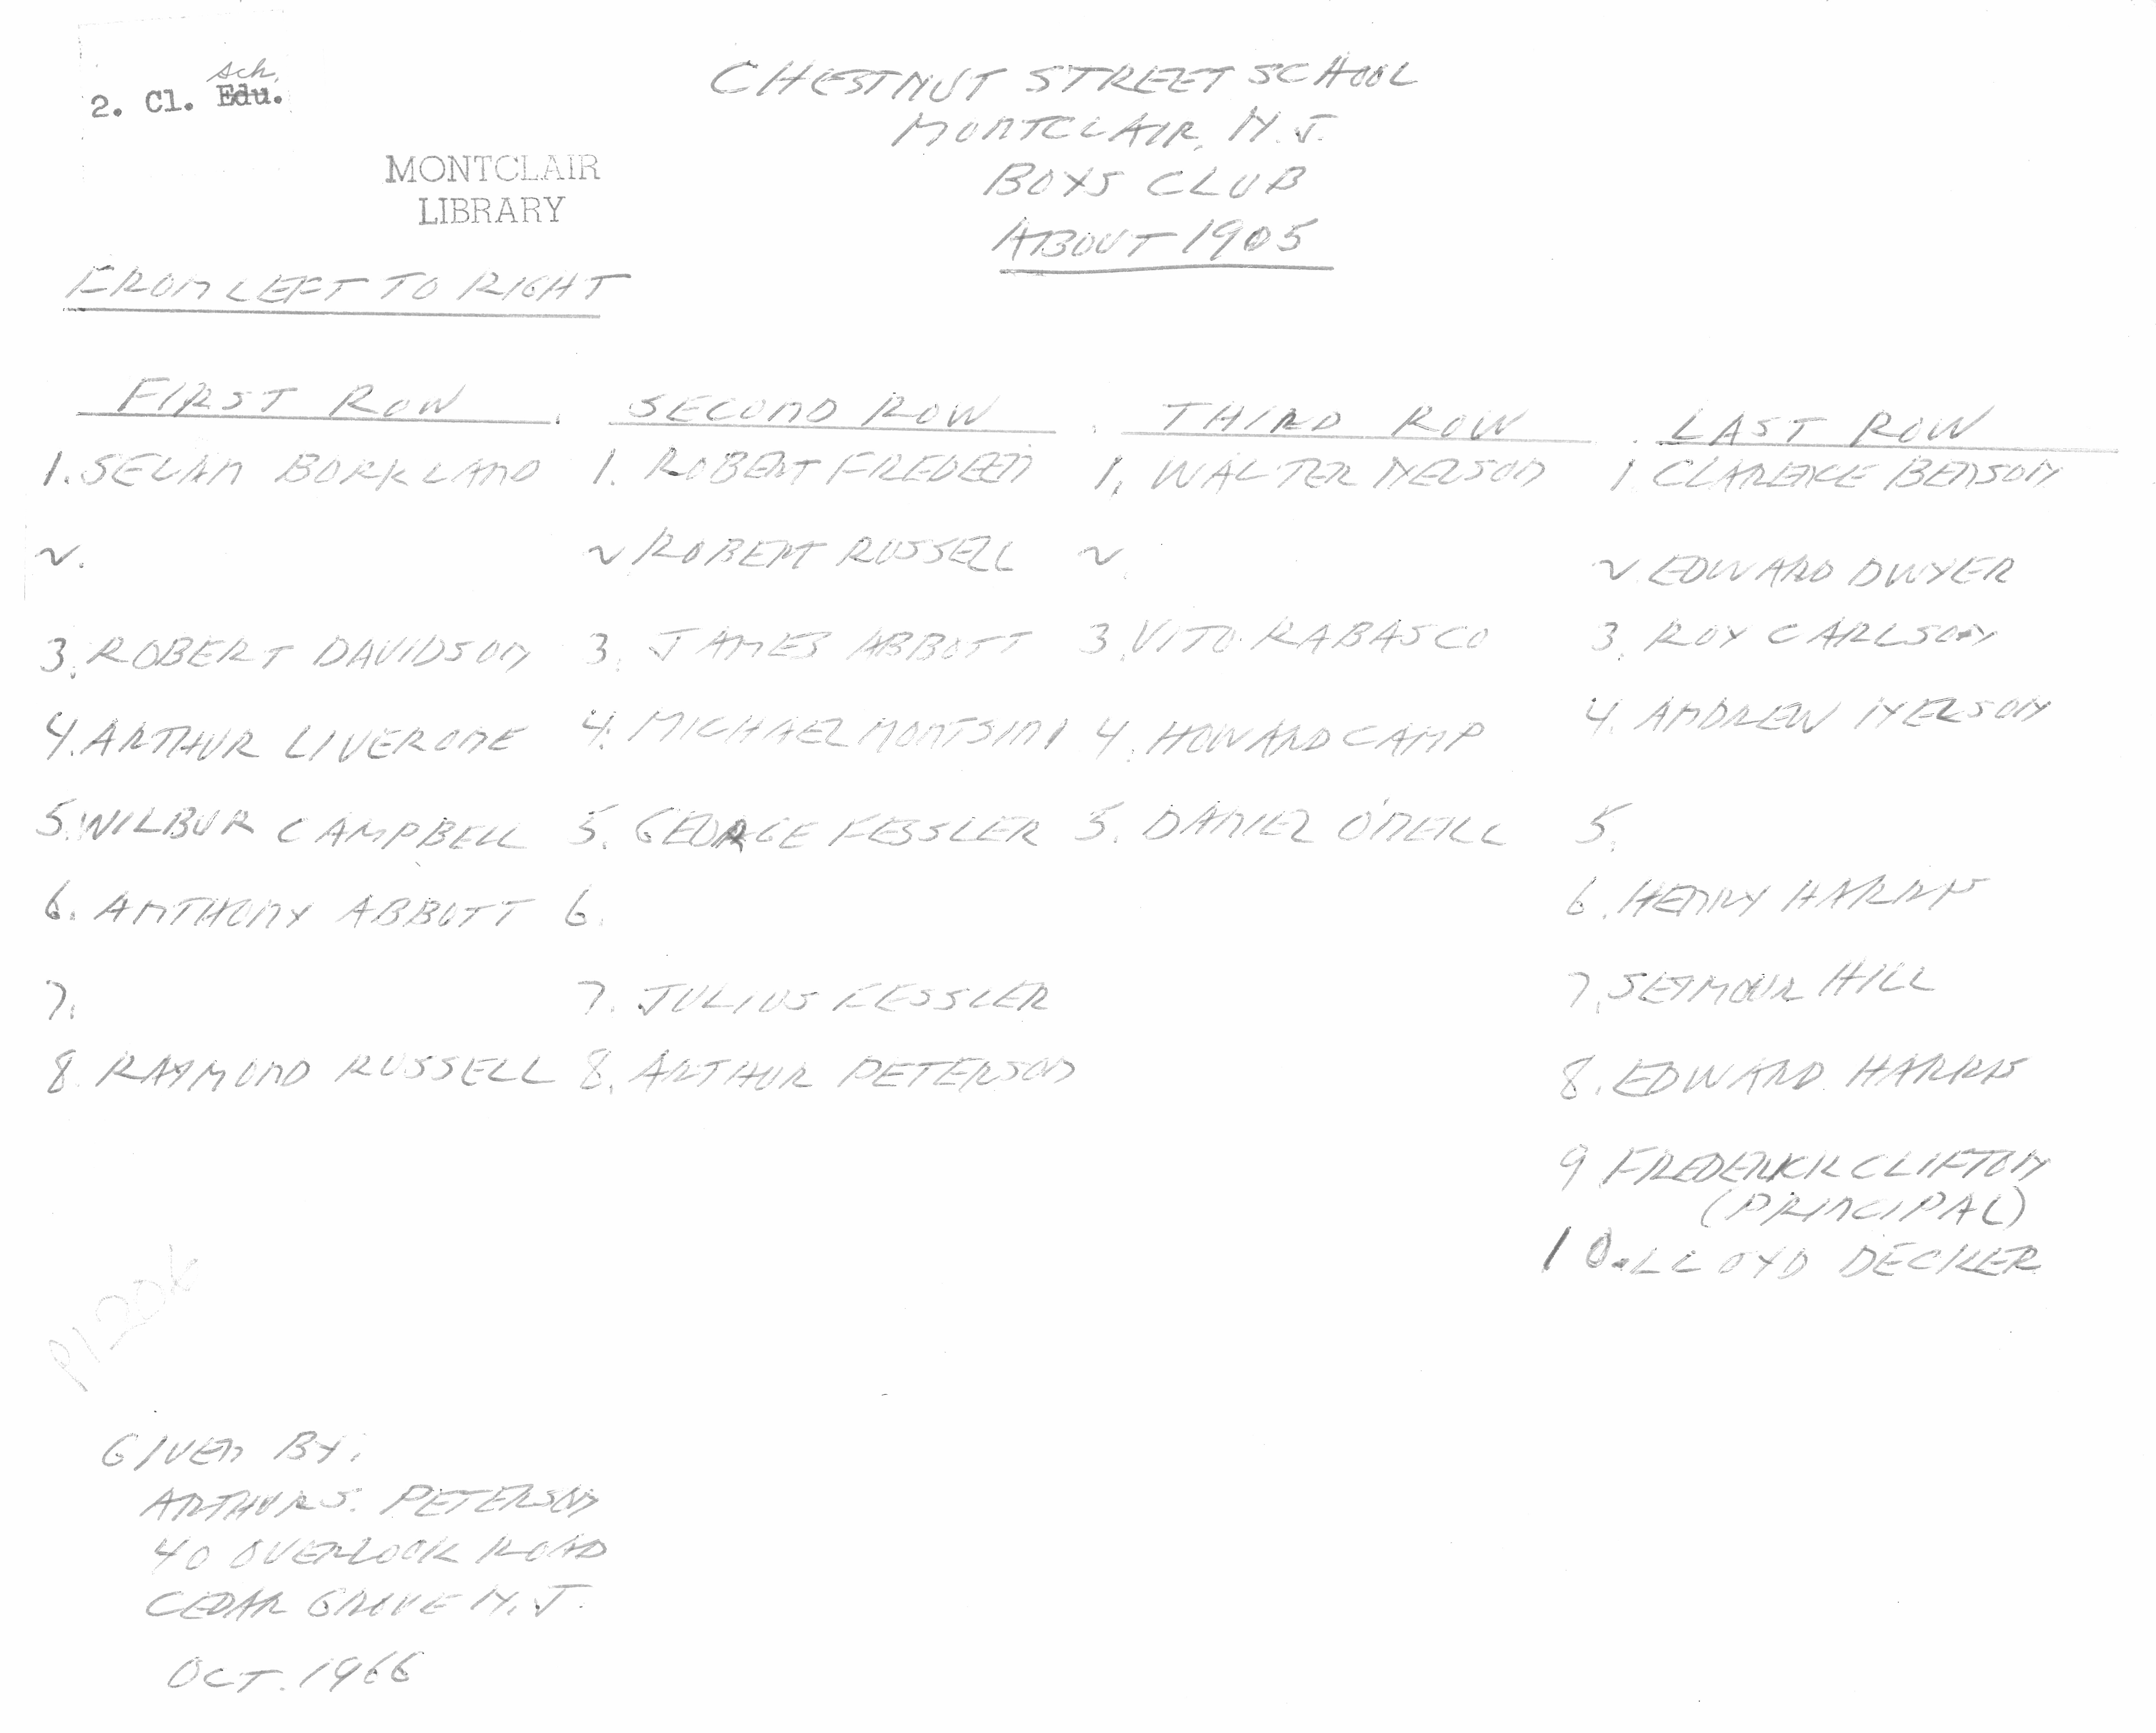 sch.
2. Cl. Edu.
MONTCLAIR
LIBRARY
CHESTNUT STREET SCHOOL
MONTCLAIR, N.J.
BOYS CLUB
ABOUT 1905
FROM LEFT TO RIGHT
FIRST ROW
1. SELAN BORKLAND
2.
3. ROBERT DAVIDSON
4. ARTHUR LIVERONE
5. WILBUR CAMPBELL
6. ANTHONY ABBOTT
7.
8. RAYMOND RUSSELL
SECOND ROW
1. ROBERT FREDEEN
2 ROBERT RUSSELL
3. JAMES ABBOTT
4. MICHAEL MONTSINI
5. GEORGE FESSLER
6.
7. JULIUS FESSLER
8. ARTHUR PETERSON
THIRD ROW
1. WALTER NELSON
2.
3. VITO RABASCO
4. HOWARD CAMP
5. DANIEL O'NEILL
LAST ROW
1. CLARENCE BENSON
2. EDWARD DWYER
3. ROY CARLSON
4. ANDREW
5.
6. HENRY HARRIS
7. SEYMOUR HILL
8. EDWARD HARRIS
9 FREDERICK CLIFTON
(PRINCIPAL)
10. LLOYD DECKER
GIVEN BY:
ARTHUR S. PETERSON
40 OVERLOOK ROAD
CEDAR GROVE N.J.
OCT. 1966